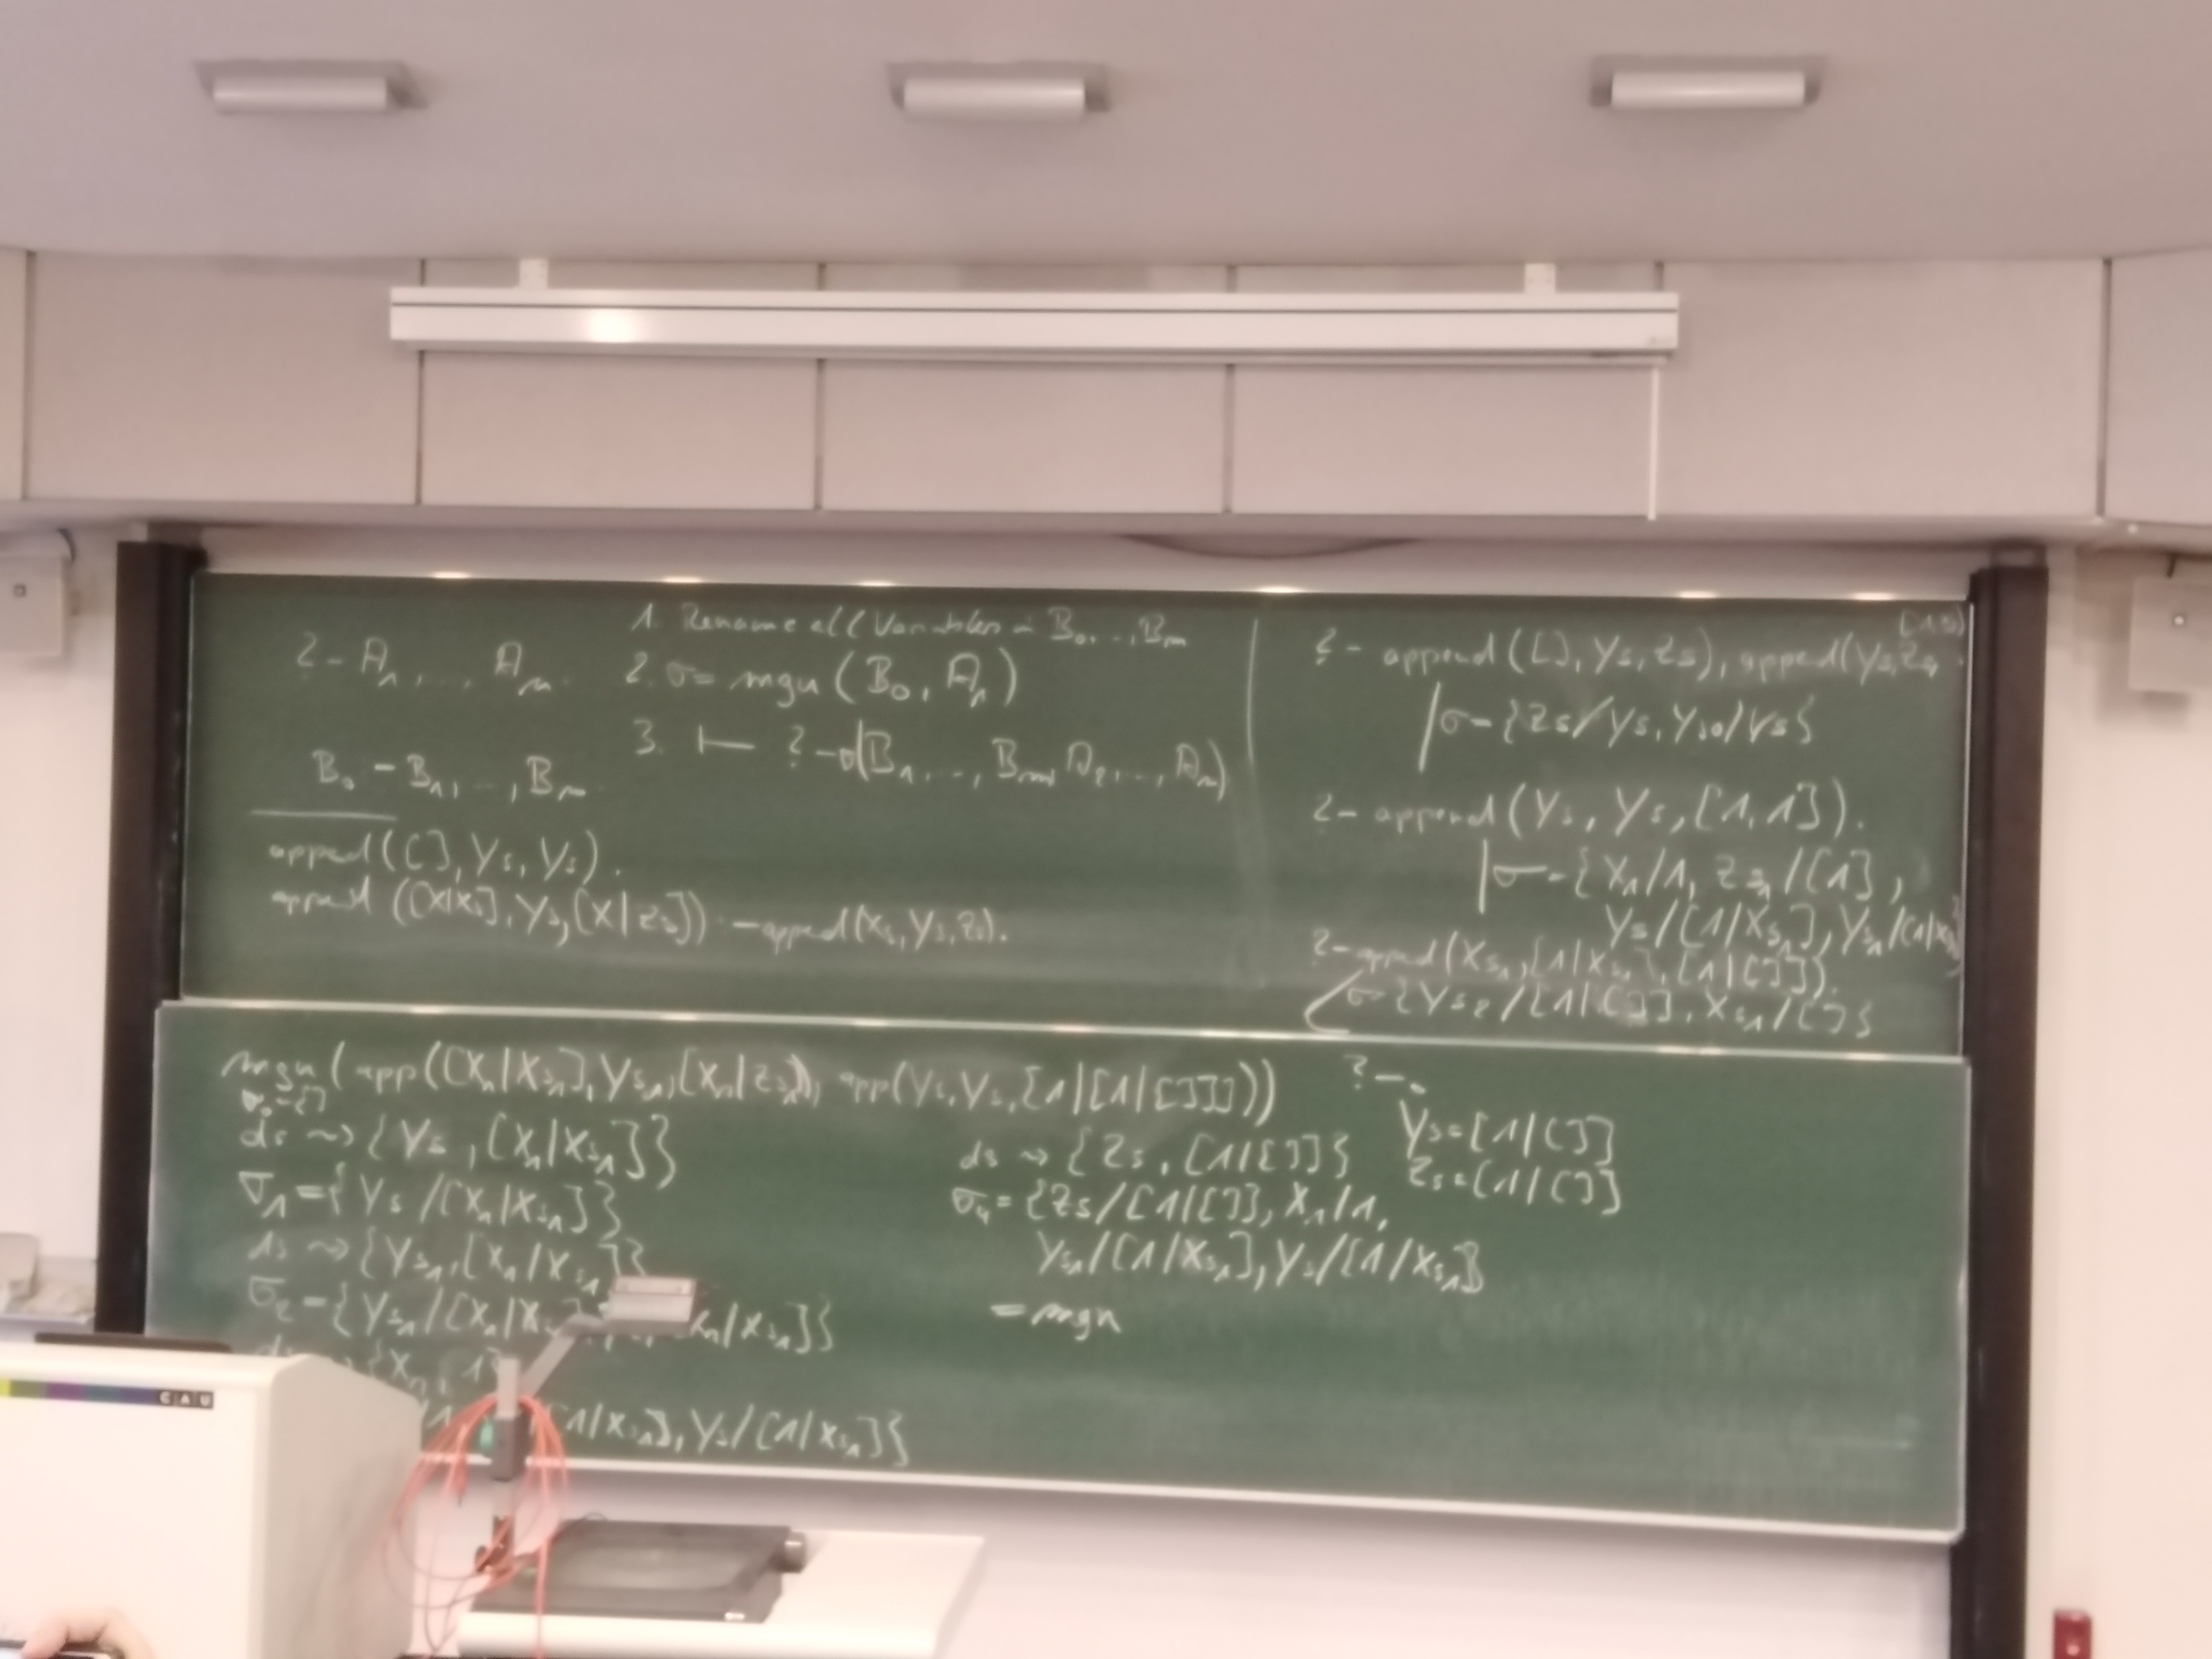 1. Rename all Variables in B₀,...,Bₘ
?- A₁,..., Aₙ.
2. σ= mgu (B₀, A₁)
3. ⊢ ?-σ(B₁,..., Bₘ, A₂,..., Aₙ)
B₀ :- B₁,...,Bₘ.
append([], Ys, Ys).
append ([X|Xs], Ys, [X|Zs]) :- append(Xs, Ys, Zs).
?- append([], Ys, Zs), append(Ys, Zs,
[1,1])
σ={Zs/Ys, Ys₀/Ys}
?- append(Ys, Ys, [1,1]).
σ={X₁/1, Zs₁/[1],
Ys/[1|Xs₁], Ys₁/[1|Xs₁]}
?-append(Xs₁, [1|Xs₁], [1|[]]).
σ={Ys₂/[1|[]], Xs₁/[]}
mgu (app([X₁|Xs₁], Ys₁, [X₁|Zs₁]), app(Ys, Ys, [1|[1|[]]]))
σ₀={}
ds ⇝ {Ys, [X₁|Xs₁]}
σ₁={Ys/[X₁|Xs₁]}
ds ⇝ {Ys₁, [X₁|Xs₁]}
σ₂={Ys₁/[X₁|Xs₁ X₁|Xs₁]}
ds ⇝ {X₁, 1}
[1|Xs₁], Ys/[1|Xs₁]}
ds ⇝ {Zs, [1|[]]}
σ₄={Zs/[1|[]], X₁/1,
Ys₁/[1|Xs₁], Ys/[1|Xs₁]}
= mgu
?- .
Ys=[1|[]]
Zs=[1|[]]
CAU